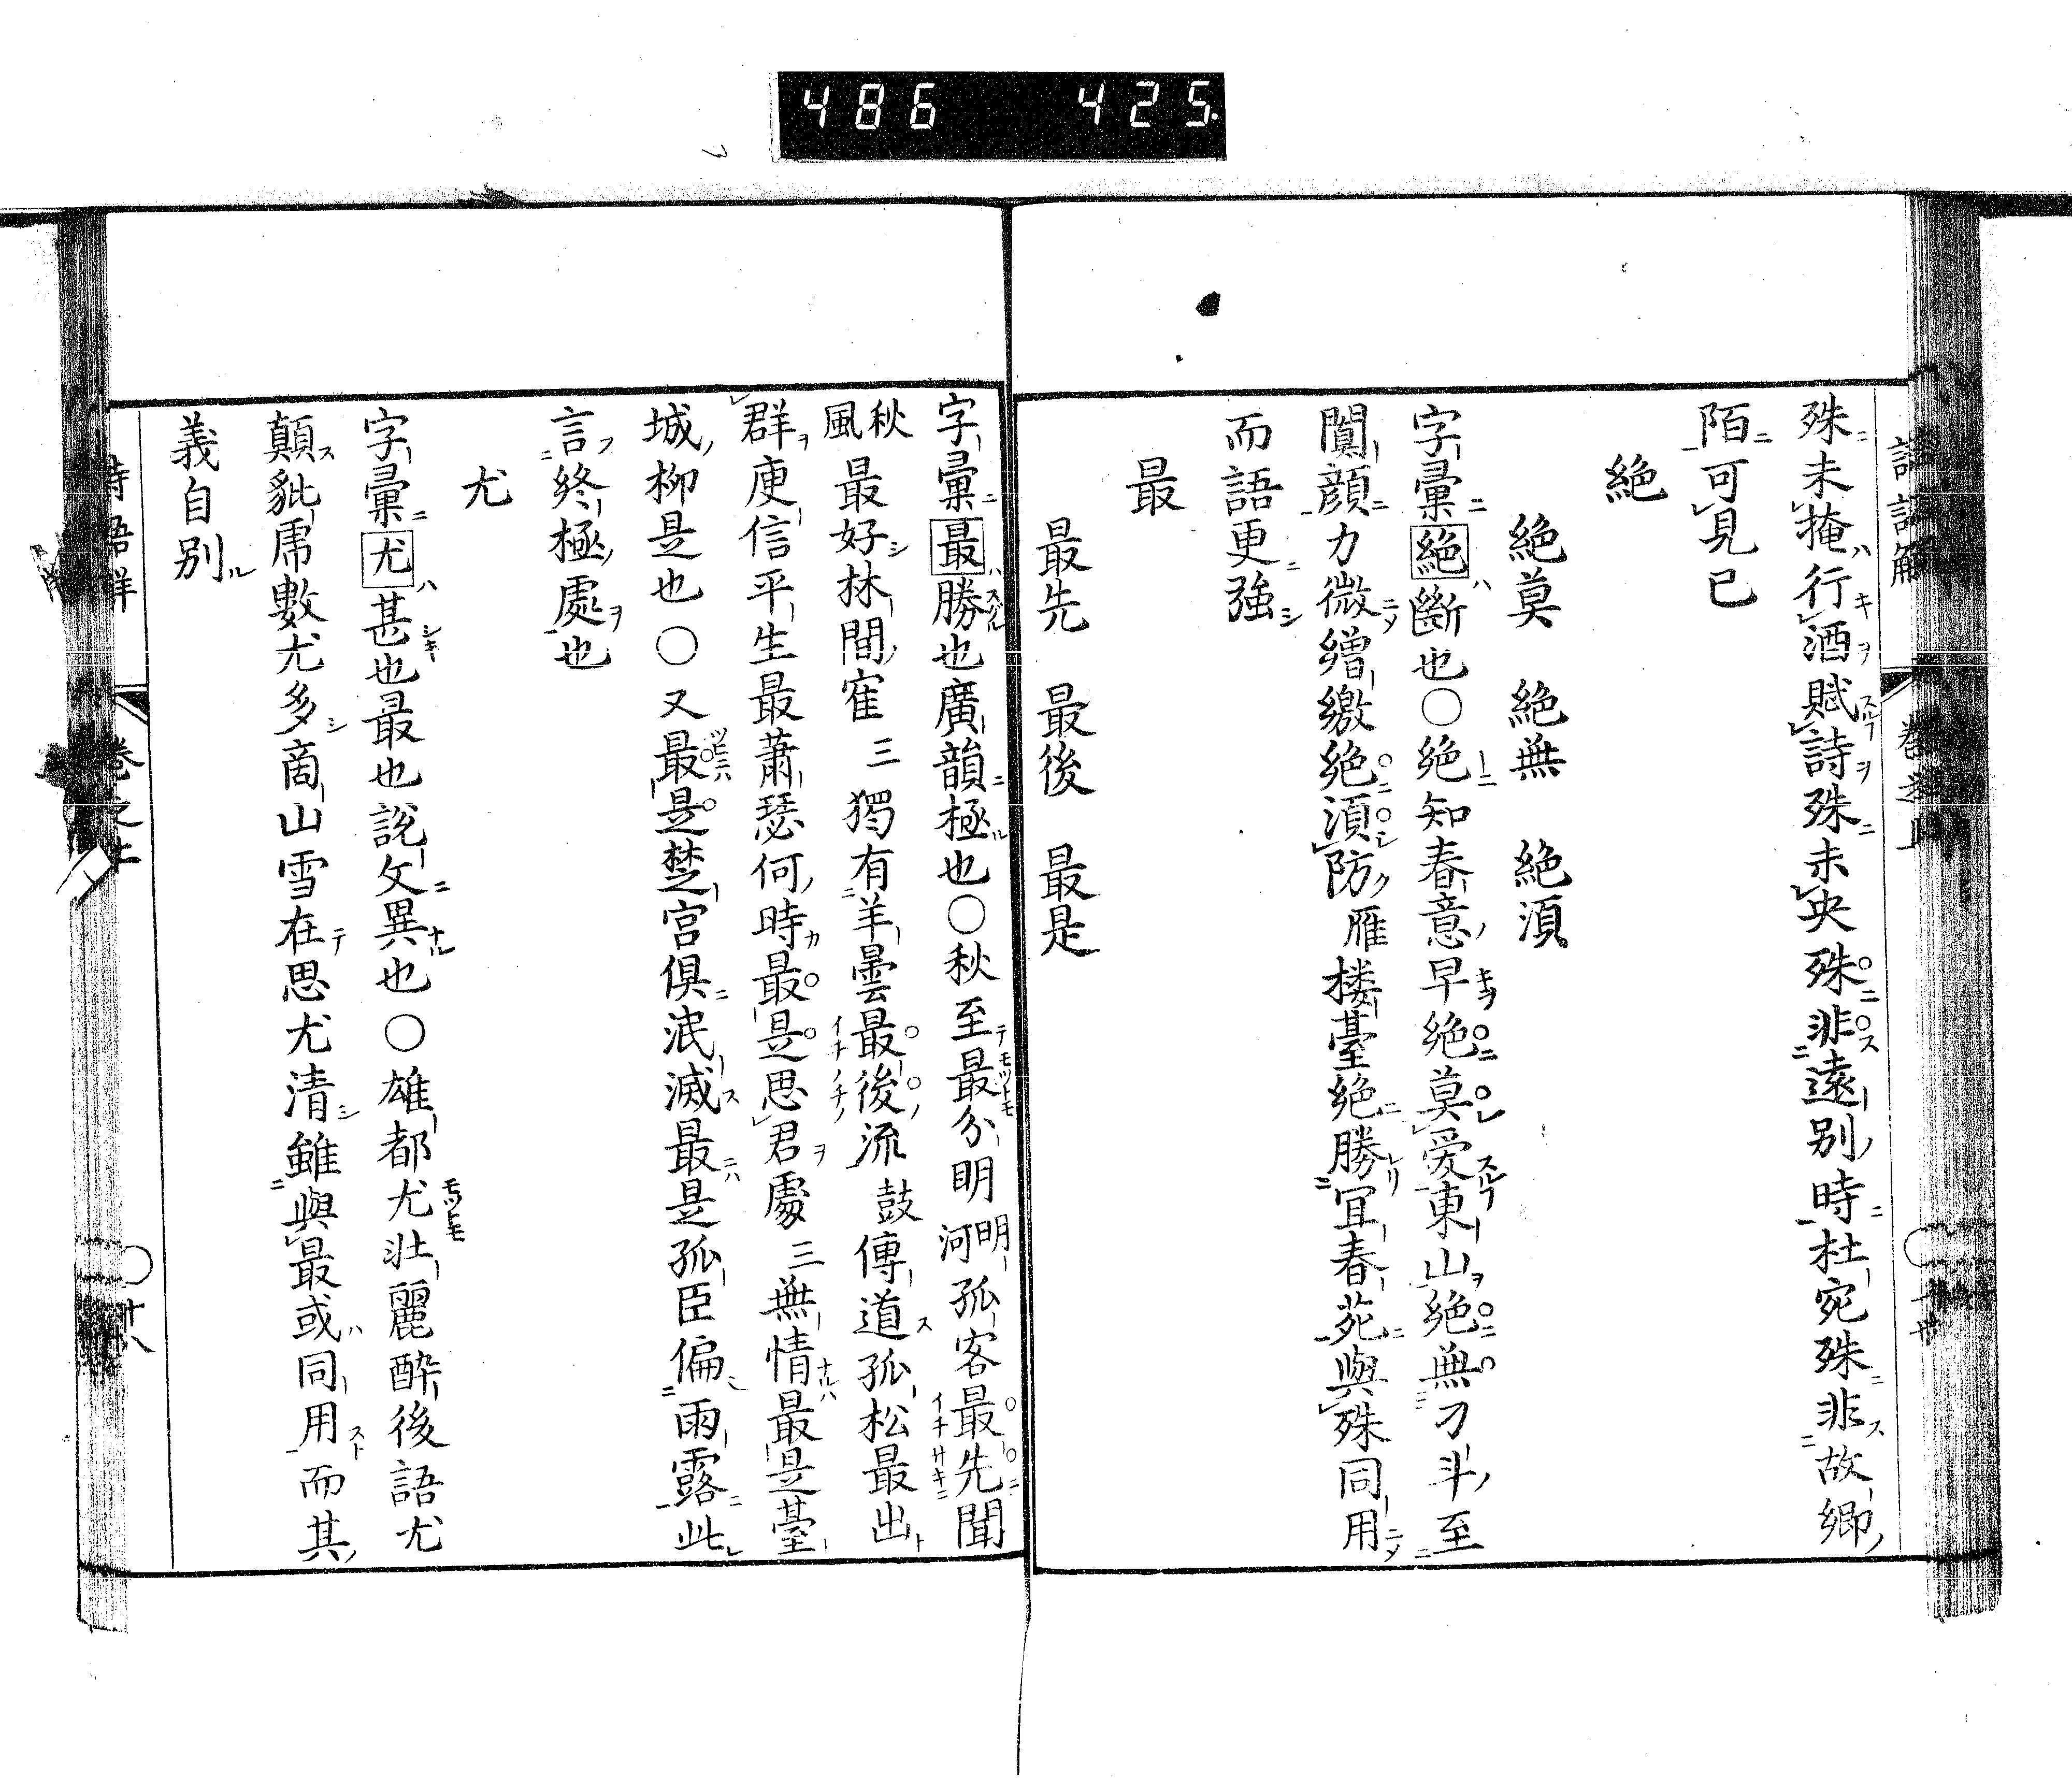 486 425
殊未掩行酒賦詩殊未央殊非遠別時杜宛殊非故鄉
陌可見已
絕
絕莫 絕無 絕須
字彙絕斷也〇絕知春意早絕莫愛東山絕無刁斗至
闐顔力微繒繳絕須防雁楼臺絕勝宜春苑與殊同用
而語更強
最
最先 最後 最是
字彙最勝也廣韻極也〇秋至最分明明河孤客最先聞
秋風最好林間寉三獨有羊曇最後流鼓傳道孤松最出
群庾信平生最蕭瑟何時最是思君處三無情最是臺
城柳是也〇又最是楚宮俱泯滅最是孤臣偏雨露此
言終極處也
尤
字彙尤甚也最也說文異也〇雄都尤壯麗酔後語尤
顛豼虎數尤多商山雪在思尤清雖與最或同用而其
義自別
卷之上
十八